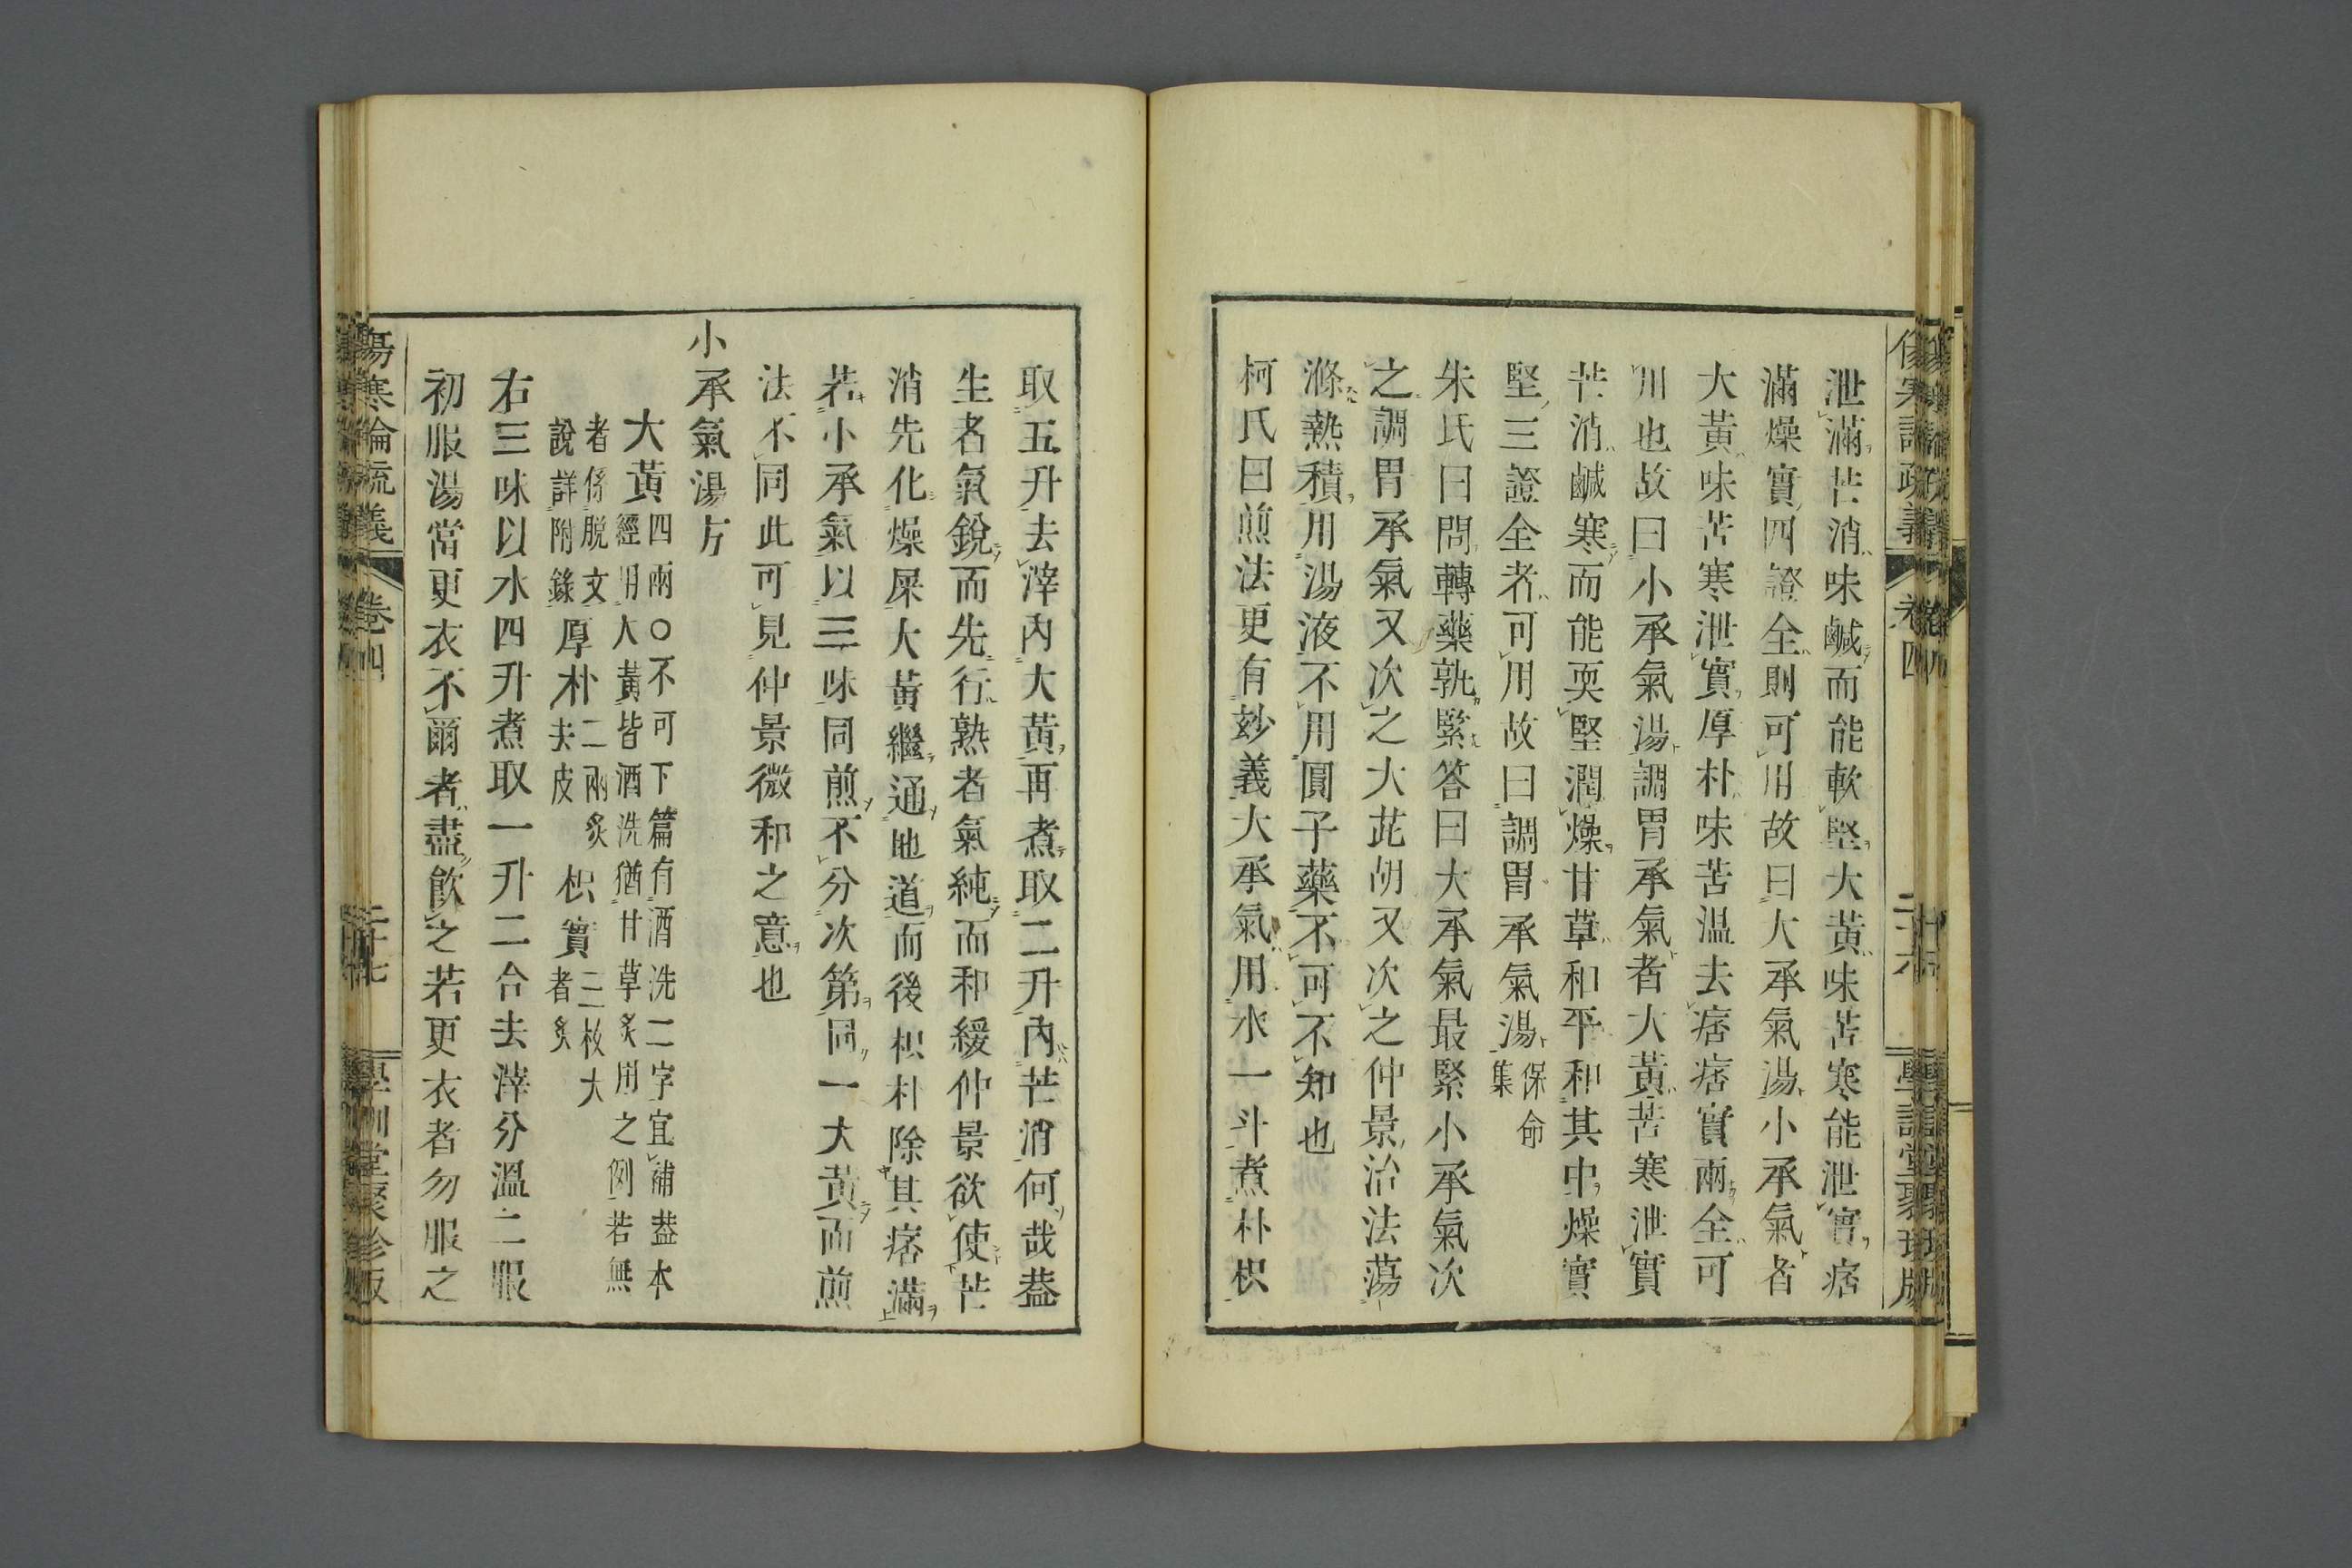 泄滿芒消味鹹而能軟堅大黃味苦寒能泄實痞
滿燥實四證全則可用故曰大承氣湯小承氣者
大黃味苦寒泄實厚朴味苦温去痞痞實兩全可
用也故曰小承氣湯調胃承氣者大黃苦寒泄實
芒消鹹寒而能耎堅潤燥甘草和平和其中燥實
堅三證全者可用故曰調胃承氣湯保命集
朱氏曰問轉藥孰緊答曰大承氣最緊小承氣次
之調胃承氣又次之大茈胡又次之仲景治法蕩
滌熱積用湯液不用圓子藥不可不知也
柯氏曰煎法更有玅義大承氣用水一斗煮朴枳
取五升去滓內大黃再煮取二升內芒消何哉葢
生者氣銳而先行熟者氣純而和緩仲景欲使芒
消先化燥屎大黃繼通地道而後枳朴除其痞滿
若小承氣以三味同煎不分次第同一大黃而煎
法不同此可見仲景微和之意也
小承氣湯方
大黃四兩○不可下篇有酒洗二字宜補葢本
經用大黃皆酒洗猶甘草炙用之例若無
者係脫文
說詳附錄
厚朴二兩炙
去皮
枳實三枚大
者炙
右三味以水四升煮取一升二合去滓分溫二服
初服湯當更衣不爾者盡飲之若更衣者勿服之
傷寒論疏義
卷四
學訓堂聚珍版